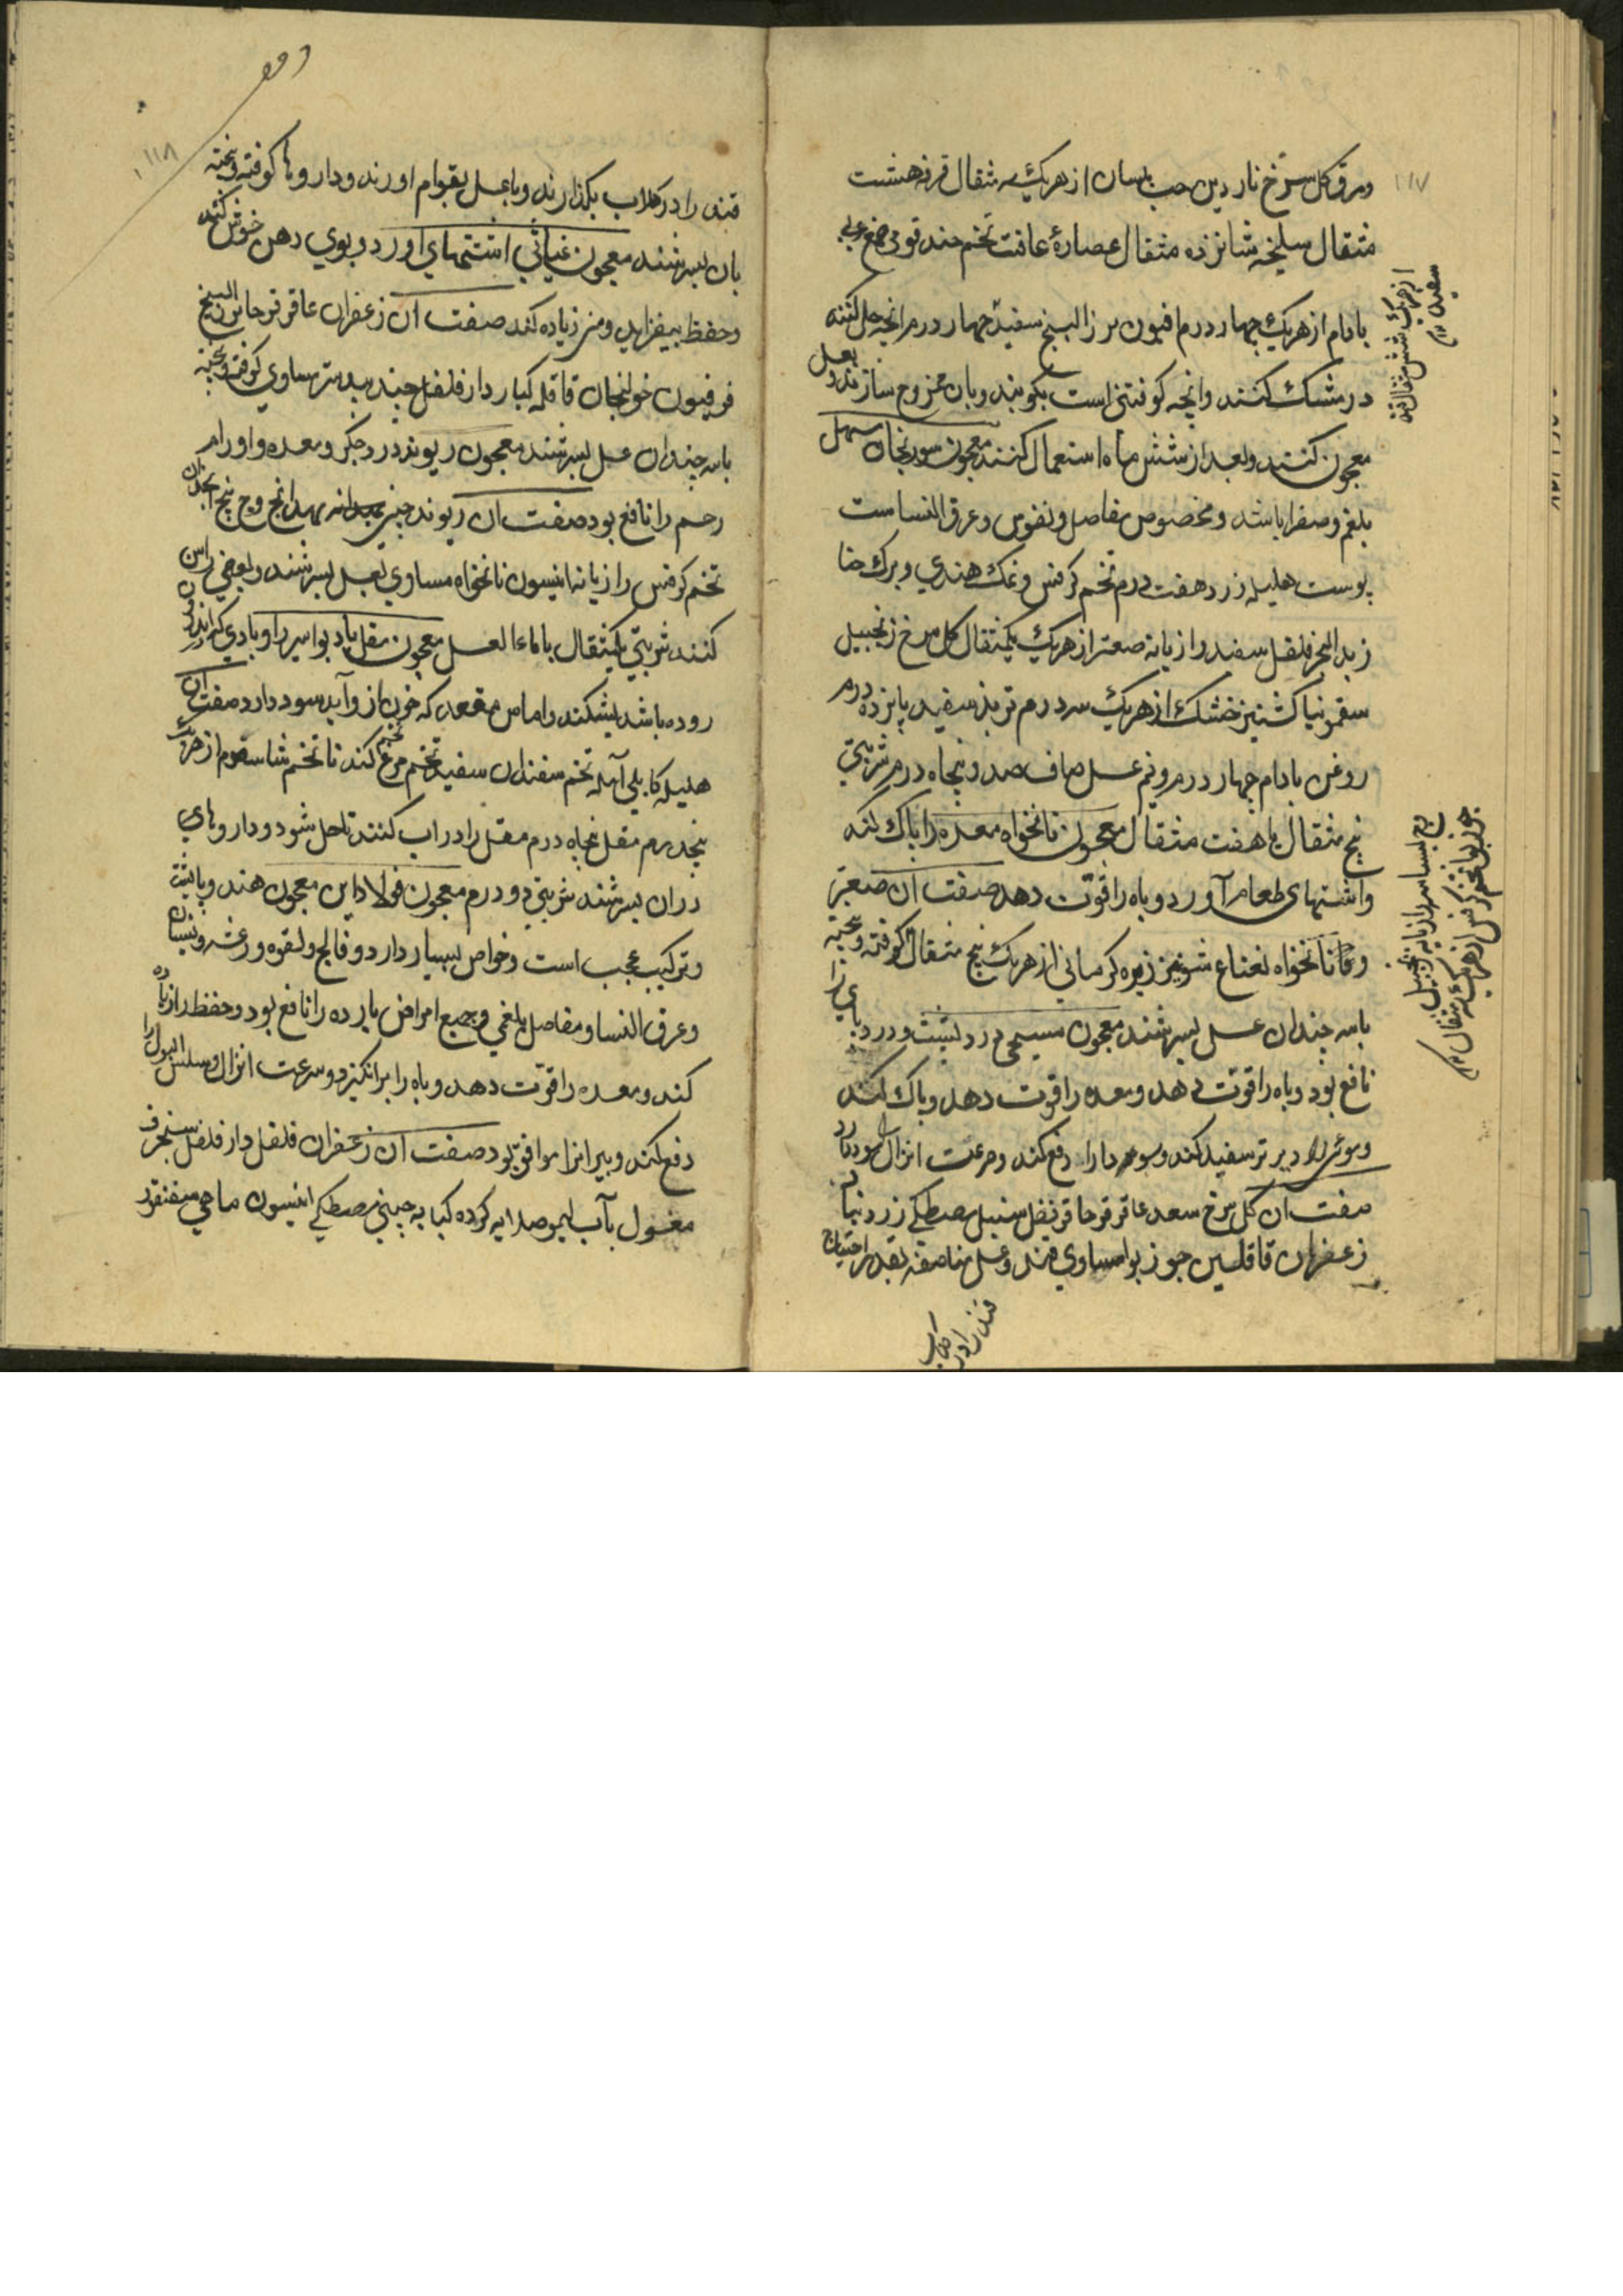 ۱۱۷
ورق گل سرخ ناردین حب بلسان از هریک سه مثقال قرفه هشت
مثقال سلیخه شانزده مثقال عصارهٔ غافت تخم جندقوقی صمغ عربی
بادام از هریک چهار درم افیون بزرالبنج سفید چهار درم انچه حل کنند
در مثلث کنند وانچه کوفتنی است بکوبند وبان ممزوج سازند وبعسل
معجون کنند وبعد از شش ماه استعمال کنند معجون سورنجان مسهل
بلغم وصفرا باشد ومخصوص مفاصل ونقرس وعرق النساست
پوست هلیله زرد هفت درم تخم کرفس ونمک هندی وبرک حنا
زبد البحر فلفل سفند رازیانه صعتر از هریک یکمثقال گل سرخ زنجبیل
سقمونیا کشنیز خشک از هریک سه درم تربد سفید پانزده درم
روغن بادام چهار درم ونیم عسل صاف صد وپنجاه درم شربتی
پنج مثقال یا هفت مثقال معجون نانخواه معده را پاک کند
واشتهای طعام آورد وباه را قوت دهد صفت ان صعتر
نانخواه نعناع شونیز زیره کرمانی از هریک پنج مثقال کوفته وبیخته
باسه چندان عسل بسرشند معجون مسیحی درد پشت ودرد پای را
نافع بود وباه را قوت دهد ومعده را قوت دهد وپاک کند
وموی را دیرتر سفید کند دفع کند وسرعت انزال سود دارد
صفت ان گل سرخ سعد عاقرقرحا قرنفل سنبل مصطکی زرنباد
زعفران قاقلتین جوزبوا مساوی قند وعسل مناصفه بقدر احتیاج
از هریک شش مثقال
بسباسه رازیانه زنجبیل
جوزبوا تخم کرفس از هریک سه مثقال
قند را در گلاب
۱۱۸
قند را در گلاب بگدازند وباعسل بقوام اورند وداروها کوفته وبیخته
بان بسرشند معجون غیاثی اشتهای اورد وبوی دهن خوش کند
وحفظ بیفزاید ومنی زیاده کند صفت ان زعفران عاقرقرحا بزر البنج
فرفیون خولنجان قاقله کبار دارفلفل جندبیدستر مساوی کوفته وبیخته
باسه چندان عسل بسرشند معجون ریوند درد جگر ومعده واورام
رحم را نافع بود صفت ان ریوند چینی وج بیخ انجدان
تخم کرفس رازیانه انیسون نانخواه مساوی بعسل بسرشند وبعضی راسن
کنند شربتی یکمثقال باماء العسل معجون مقل باد بواسیر را وبادی که اندر
روده باشد بشکند واماس مقعد که خون ازو آید سود دارد صفت ان
هلیله کابلی آمله تخم سفندان سفید تخم مرو تخم گندنا تخم شاسفرم از هریک
پنجدرم مقل پنجاه درم مقل را در اب کنند تا حل شود وداروهای
دران بسرشند شربتی دو درم معجون فولاد این معجون هند
وترکیب عجب است وخواص بسیار دارد وفالج ولقوه ورعشه ونسیان
وعرق النسا ومفاصل بلغمی وجمیع امراض بارده را نافع بود وحفظ را زیاده
کند ومعده را قوت دهد وباه را برانگیزد وسرعت انزال وسلس البول را
دفع کند وپیرانرا موافق بود صفت ان زعفران فلفل دارفلفل سنجرف
مغسول بآب لیمو کرده کبابه چینی مصطکی انیسون ماهی سقنقور